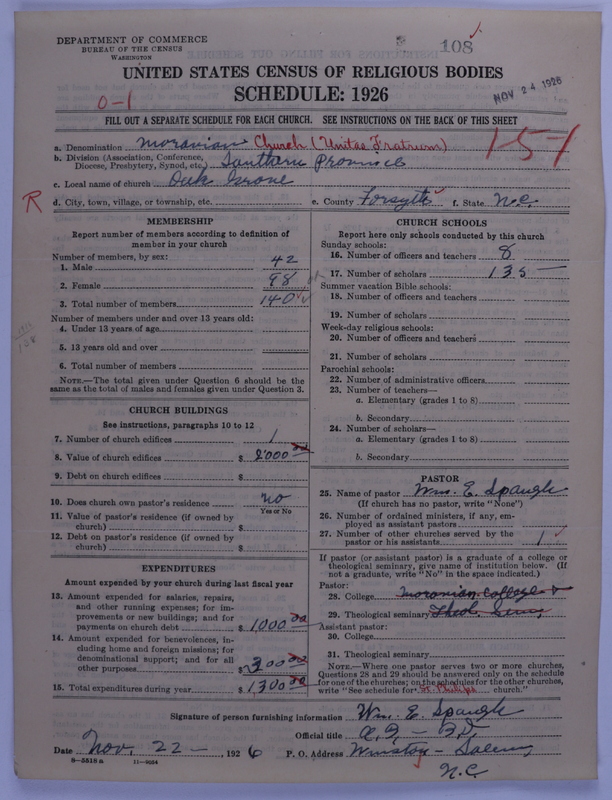 DEPARTMENT OF COMMERCE
BUREAU OF THE CENSUS
WASHINGTON
108
UNITED STATES CENSUS OF RELIGIOUS BODIES
SCHEDULE: 1926
NOV 24 1926
0-1
FILL OUT A SEPARATE SCHEDULE FOR EACH CHURCH. SEE INSTRUCTIONS ON THE BACK OF THIS SHEET
a. Denomination Moravian Church (Unitas Fratrum)
15-1
b. Division (Association, Conference, Diocese, Presbytery, Synod, etc.) Southern Province
c. Local name of church Oak Grove
R
d. City, town, village, or township, etc. e. County Forsyth f. State N.C.
MEMBERSHIP
Report number of members according to definition of member in your church
Number of members, by sex:
1. Male 42
2. Female 98
3. Total number of members 140
Number of members under and over 13 years old:
4. Under 13 years of age
5. 13 years old and over
6. Total number of members
NOTE.—The total given under Question 6 should be the same as the total of males and females given under Question 3.
CHURCH BUILDINGS
See instructions, paragraphs 10 to 12
7. Number of church edifices 1
8. Value of church edifices $ 2000 00
9. Debt on church edifices $
10. Does church own pastor's residence no
Yes or No
11. Value of pastor's residence (if owned by church) $
12. Debt on pastor's residence (if owned by church) $
EXPENDITURES
Amount expended by your church during last fiscal year
13. Amount expended for salaries, repairs, and other running expenses; for improvements or new buildings; and for payments on church debt $ 1000 00
14. Amount expended for benevolences, including home and foreign missions; for denominational support; and for all other purposes $ 300 00
15. Total expenditures during year $ 1,300 00
CHURCH SCHOOLS
Report here only schools conducted by this church
Sunday schools:
16. Number of officers and teachers 8
17. Number of scholars 135 —
Summer vacation Bible schools:
18. Number of officers and teachers
19. Number of scholars
Week-day religious schools:
20. Number of officers and teachers
21. Number of scholars
Parochial schools:
22. Number of administrative officers
23. Number of teachers—
a. Elementary (grades 1 to 8)
b. Secondary
24. Number of scholars—
a. Elementary (grades 1 to 8)
b. Secondary
PASTOR
25. Name of pastor Wm. E. Spaugh
(If church has no pastor, write "None")
26. Number of ordained ministers, if any, employed as assistant pastors
27. Number of other churches served by the pastor or his assistants 1
If pastor (or assistant pastor) is a graduate of a college or theological seminary, give name of institution below. (If not a graduate, write "No" in the space indicated.)
Pastor:
28. College Moravian College &
29. Theological seminary Theol. Sem.
Assistant pastor:
30. College
31. Theological seminary
NOTE.—Where one pastor serves two or more churches, Questions 28 and 29 should be answered only on the schedule for one of the churches; on the schedules for the other churches, write "See schedule for St. Philips church."
Signature of person furnishing information Wm. E. Spaugh
Official title A.B. - B.D.
Date Nov. 22 —, 1926 P. O. Address Winston-Salem,
8—5518 a 11—9664
N.C.